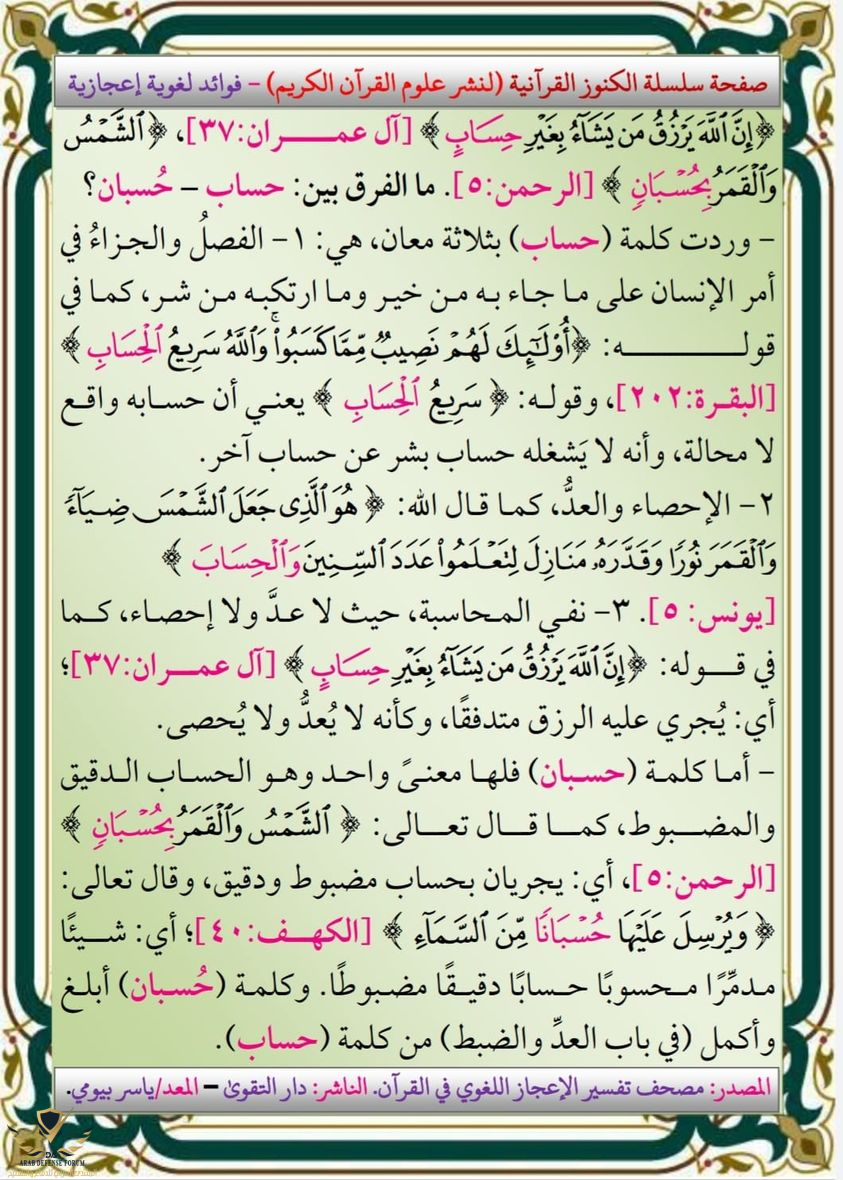 صفحة سلسلة الكنوز القرآنية (لنشر علوم القرآن الكريم) – فوائد لغوية إعجازية
﴿إِنَّ ٱللَّهَ يَرْزُقُ مَن يَشَآءُ بِغَيْرِ حِسَابٍ﴾ [آل عمـــران:٣٧]، ﴿ٱلشَّمْسُ
وَٱلْقَمَرُ بِحُسْبَانٍ﴾ [الرحمن:٥]. ما الفرق بين: حساب – حُسبان؟
– وردت كلمة (حساب) بثلاثة معان، هي: ١– الفصلُ والجـزاءُ في
أمر الإنسان على مـا جـاء بـه مـن خيـر ومـا ارتكبـه مـن شـر، كمـا في
قولـــــــه: ﴿أُوْلَـٰٓئِكَ لَهُمْ نَصِيبٌ مِّمَّا كَسَبُواْ ۚ وَٱللَّهُ سَرِيعُ ٱلْحِسَابِ﴾
[البقـرة:٢٠٢]، وقولـه: ﴿سَرِيعُ ٱلْحِسَابِ﴾ يعنـي أن حسـابه واقـع
لا محالة، وأنه لا يَشغله حساب بشر عن حساب آخر.
٢– الإحصاء والعدُّ، كمـا قـال الله: ﴿هُوَ ٱلَّذِى جَعَلَ ٱلشَّمْسَ ضِيَآءً
وَٱلْقَمَرَ نُورًا وَقَدَّرَهُۥ مَنَازِلَ لِتَعْلَمُواْ عَدَدَ ٱلسِّنِينَ وَٱلْحِسَابَ﴾
[يونس: ٥]. ٣– نفـي المـحاسبة، حيث لا عـدَّ ولا إحصـاء، كـما
في قــوله: ﴿إِنَّ ٱللَّهَ يَرْزُقُ مَن يَشَآءُ بِغَيْرِ حِسَابٍ﴾ [آل عمــران:٣٧]؛
أي: يُجري عليه الرزق متدفقًا، وكأنه لا يُعدُّ ولا يُحصى.
– أمـا كلمـة (حسـبان) فلهـا معنـىً واحـد وهـو الحسـاب الـدقيق
والمضــبوط، كمــا قــال تعــالى: ﴿ٱلشَّمْسُ وَٱلْقَمَرُ بِحُسْبَانٍ﴾
[الرحمن:٥]، أي: يجريان بحساب مضبوط ودقيق، وقال تعالى:
﴿وَيُرْسِلَ عَلَيْهَا حُسْبَانًا مِّنَ ٱلسَّمَآءِ﴾ [الكهــف:٤٠]؛ أي: شــيئًا
مـدمِّرًا مـحسوبًا حسـابًا دقيـقًـا مضـبوطًا. وكلمـة (حُسبان) أبلـغ
وأكمل (في باب العدِّ والضبط) من كلمة (حساب).
المصدر: مصحف تفسير الإعجاز اللغوي في القرآن. الناشر: دار التقوىٰ – المعد/ياسر بيومي.
ARAB DEFENSE FORUM